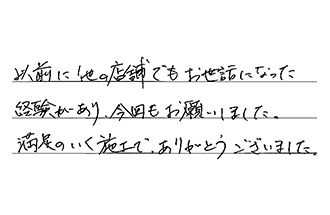 以前に他の店舗でもお世話になった
経験があり、今回もお願いしました。
満足のいく施工で、ありがとうございました。